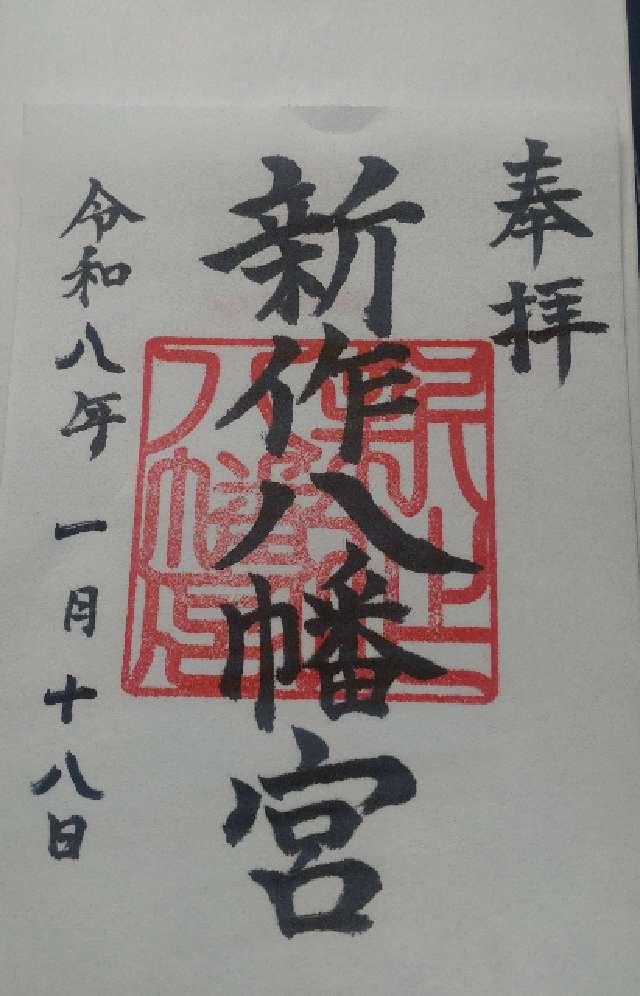 奉拝
新作八幡宮
令和八年 一月十八日